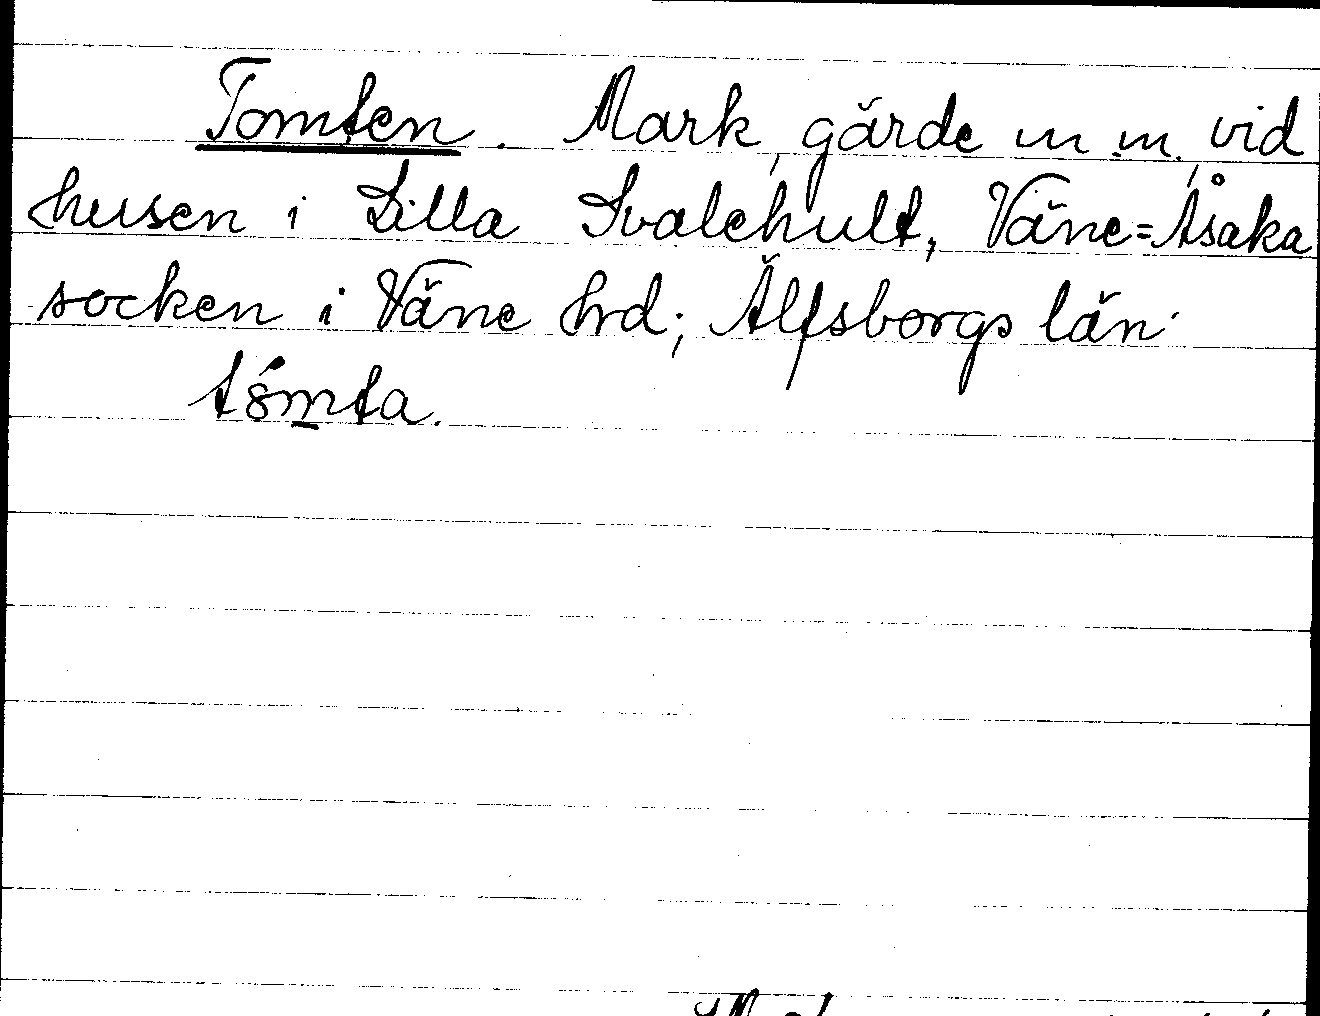 Tomten. Mark, gärde m. m. vid
husen i Lilla Svalehult, Väne=Åsaka
socken i Väne hrd; Älfsborgs län.